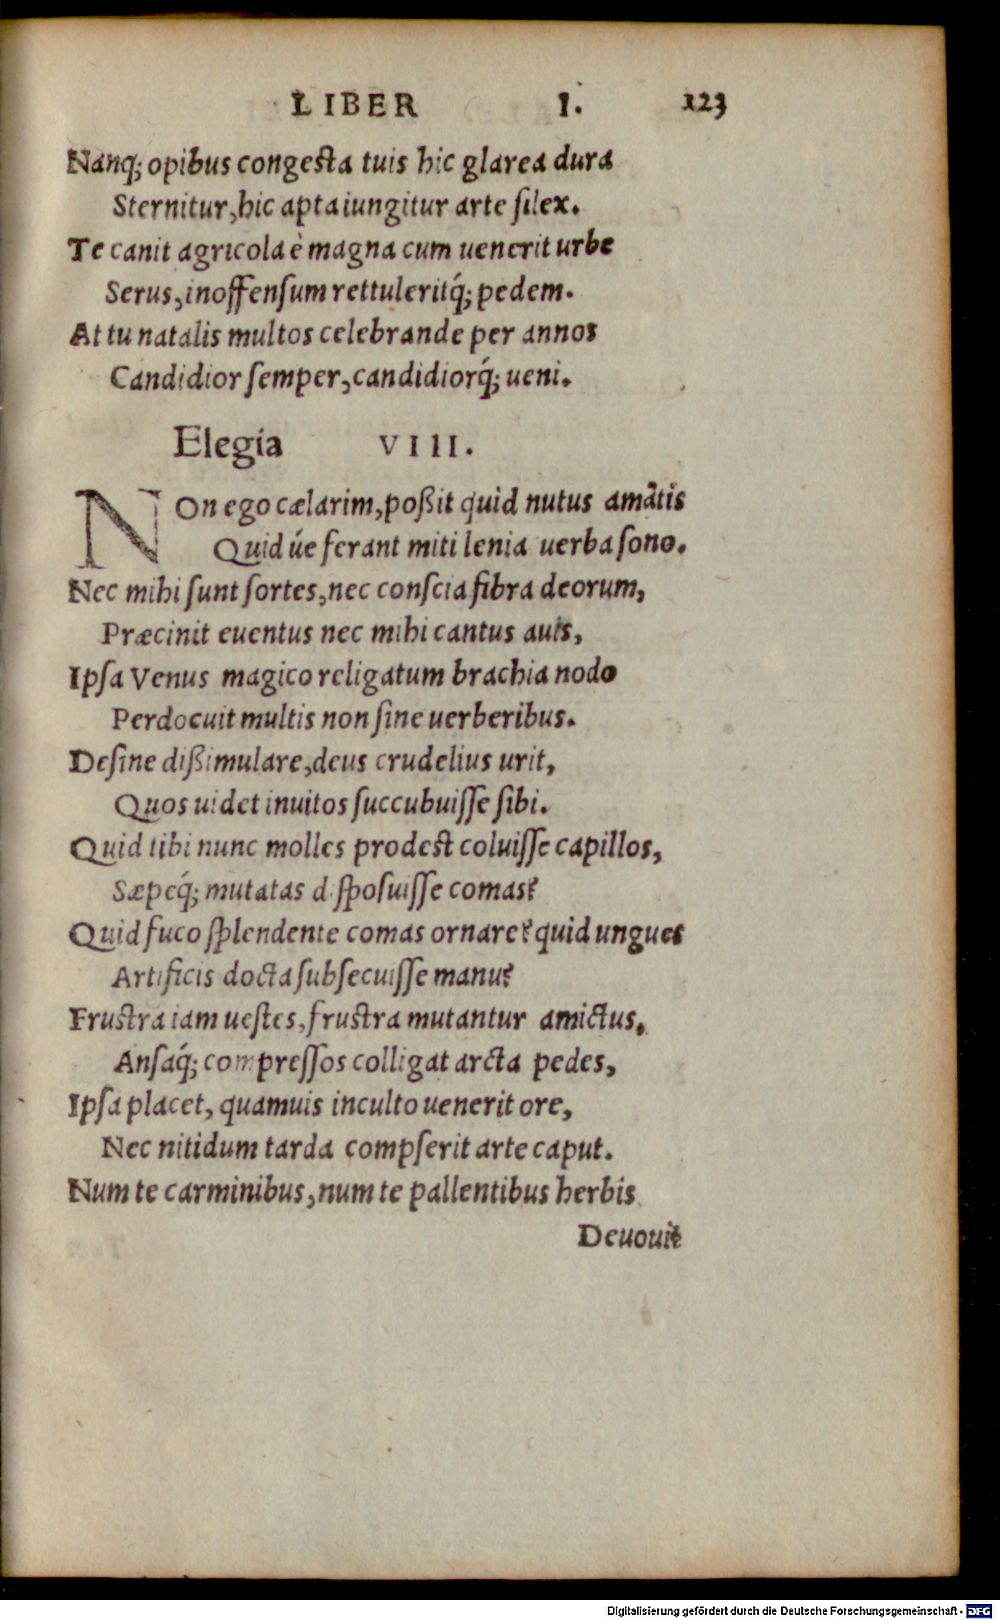 LIBER I. 123
Nanq; opibus congesta tuis hic glarea dura
Sternitur, hic apta iungitur arte silex.
Te canit agricola è magna cum uenerit urbe
Serus, inoffensum rettuleritq́; pedem.
At tu natalis multos celebrande per annos
Candidior semper, candidiorq́; ueni.
Elegia VIII.
NOn ego cælarim, poßit quid nutus amãtis
Quid úe ferant miti lenia uerba sono.
Nec mihi sunt sortes, nec conscia fibra deorum,
Præcinit euentus nec mihi cantus auis,
Ipsa Venus magico religatum brachia nodo
Perdocuit multis non sine uerberibus.
Desine dißimulare, deus crudelius urit,
Quos uidet inuitos succubuisse sibi.
Quid tibi nunc molles prodest coluisse capillos,
Sæpeq́; mutatas disposuisse comas?
Quid fuco splendente comas ornare? quid ungues
Artificis docta subsecuisse manu?
Frustra iam uestes, frustra mutantur amictus,
Ansaq́; compressos colligat arcta pedes,
Ipsa placet, quamuis inculto uenerit ore,
Nec nitidum tarda compserit arte caput.
Num te carminibus, num te pallentibus herbis
Deuouit
Digitalisierung gefördert durch die Deutsche Forschungsgemeinschaft - DFG